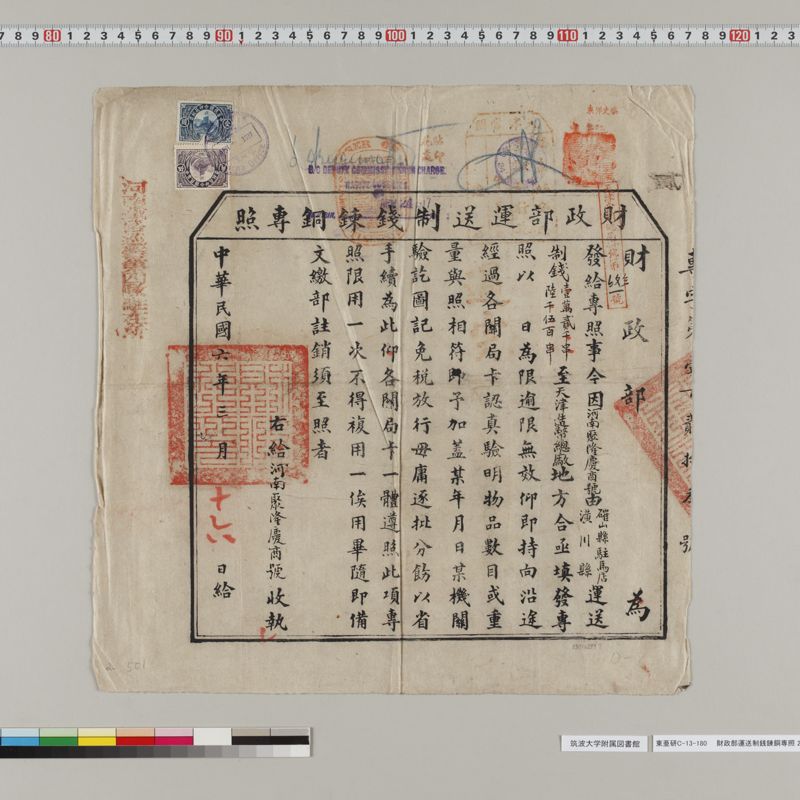 財政部運送制錢鍊銅專照
財政部 為
發給專照事今因河南聚隆慶商號由確山縣駐馬店潢川縣運送
制錢壹萬貳千串陸千伍百串至天津造幣總廠地方合亟填發專
照以 日為限逾限無效仰即持向沿途
經過各關局卡認真驗明物品數目或重
量與照相符即予加蓋某年月日某機關
驗訖圖記免稅放行毋庸逐批分飭以省
手續為此仰各關局卡一體遵照此項專
照限用一次不得複用一俟用畢隨即備
文繳部註銷須至照者
右給河南聚隆慶商號收執
中華民國六年三月十六日給
DEPUTY COMMISSIONER IN CHARGE.
筑波大学附属図書館
東亜研C-13-180 財政部運送制銭錬銅専照 2